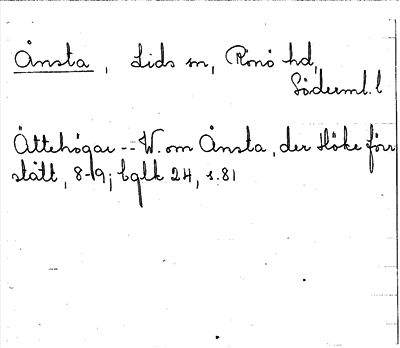 Ånsta, Lids sn, Rönö hd,
Söderml. l
Ättehögar -- W. om Ånsta, der Höke förr
stått, 8-19; bglk 24, s. 81